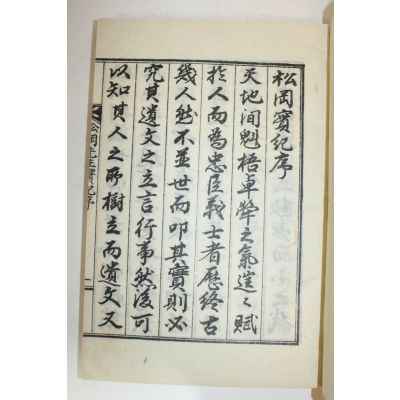 松岡實紀序
天地間魁梧卓犖之氣運〻賦
於人而為忠臣義士者歷終古
幾人然不並世而叩其實則必
究其遺文之立言行事然後可
以知其人之所樹立而遺文又
松岡先生實紀序
一